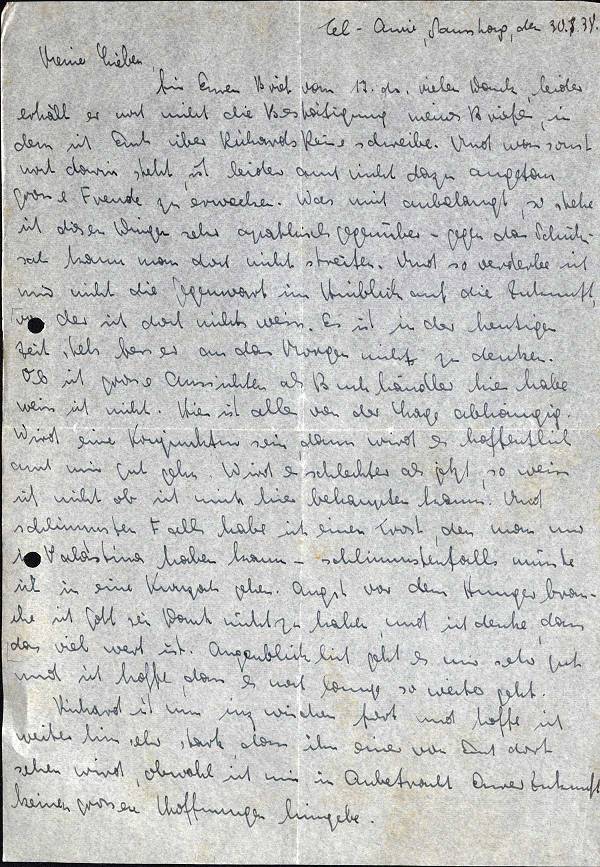 Tel-Aviv, Samstag, den 30.7.38.
Meine Lieben,
für Euren Brief vom 12. ds. vielen Dank, leider
erhält er noch nicht die Bestätigung meines Briefes, in
dem ich Euch über Richards Reise schreibe. Und was sonst
noch darin steht, ist leider auch nicht dazu angetan
grosse Freude zu erwecken. Was mich anbelangt, so stehe
ich diesen Dingen sehr apathisch gegenüber - gegen das Schick-
sal kann man doch nicht streiten. Und so verderbe ich
mir nicht die Gegenwart im Hinblick auf die Zukunft,
von der ich doch nichts weiss. Es ist in der heutigen
Zeit stets besser an das Morgen nicht zu denken.
Ob ich grosse Aussichten als Buchhändler hier habe
weiss ich nicht. Hier ist alles von der Lage abhängig.
Wird eine Konjunktur sein dann wird es hoffentlich
auch mir gut gehn. Wird es schlechter als jetzt, so weiss
ich nicht ob ich mich hier behaupten kann. Und
schlimmsten Falls habe ich einen Trost, den man nur
in Palästina haben kann - schlimmstenfalls müsste
ich in eine Kwuzah gehen. Angst vor dem Hunger brau-
che ich Gott sei Dank nicht zu haben, und ich denke, dass
das viel wert ist. Augenblicklich geht es mir sehr gut
und ich hoffe, dass es noch lange so weiter geht.
Richard ist nun inzwischen fort und hoffe ich
weiterhin sehr stark, dass ihn einer von Euch dort
sehen wird, obwohl ich mich in Anbetracht Eurer Zukunft
keinen grossen Hoffnungen hingebe.